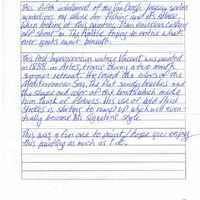 This fifth installment of my Van Gogh fusion series
symbolizes my desire for fishing and its solace.
When looking at this painting, I can envision casting
off shore in The Pacific trying to entice what
ever awaits beneath.
This Post-Impressionism vintage Vincent was painted
in 1888 in Arles, France during a two month
summer retreat. He loved the colors of the
Mediterranean Sea, the flat sandy beaches and
the shape and color of the boats which made
him think of flowers. His use of bold fluid
strokes is starting to ramp up which will even-
tually become his signature style.
This was a fun one to paint, I hope you enjoy
this painting as much as I do.